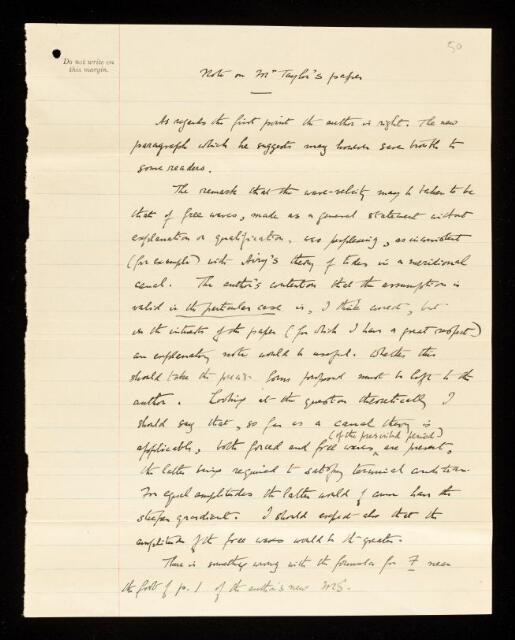 50
Do not write on
this margin.
Note on Mr Taylor's paper
As regards the first point the author is right. The new
paragraph which he suggests may however save trouble to
some readers.
The remark that the wave-velocity may be taken to be
that of free waves, made as a general statement without
explanation or qualification, was perplexing, as inconsistent
(for example) with Airy's theory of tides in a meridional
canal. The author's contention that the assumption is
valid in the particular case is, I think correct, but
in the interests of the paper (for which I have a great respect)
an explanatory note would be useful. Whether this
should take the precise form proposed must be left to the
author. Looking at the question theoretically I
should say that, so far as a canal theory is
(of the prescribed period)
applicable, both forced and free waves are present,
the latter being required to satisfy terminal conditions.
For equal amplitudes the latter would of course have the
steeper gradient. I should expect also that the
amplitude of the free waves would be the greater.
There is something wrong with the formula for F near
the foot of p. 1 of the author's new MS.